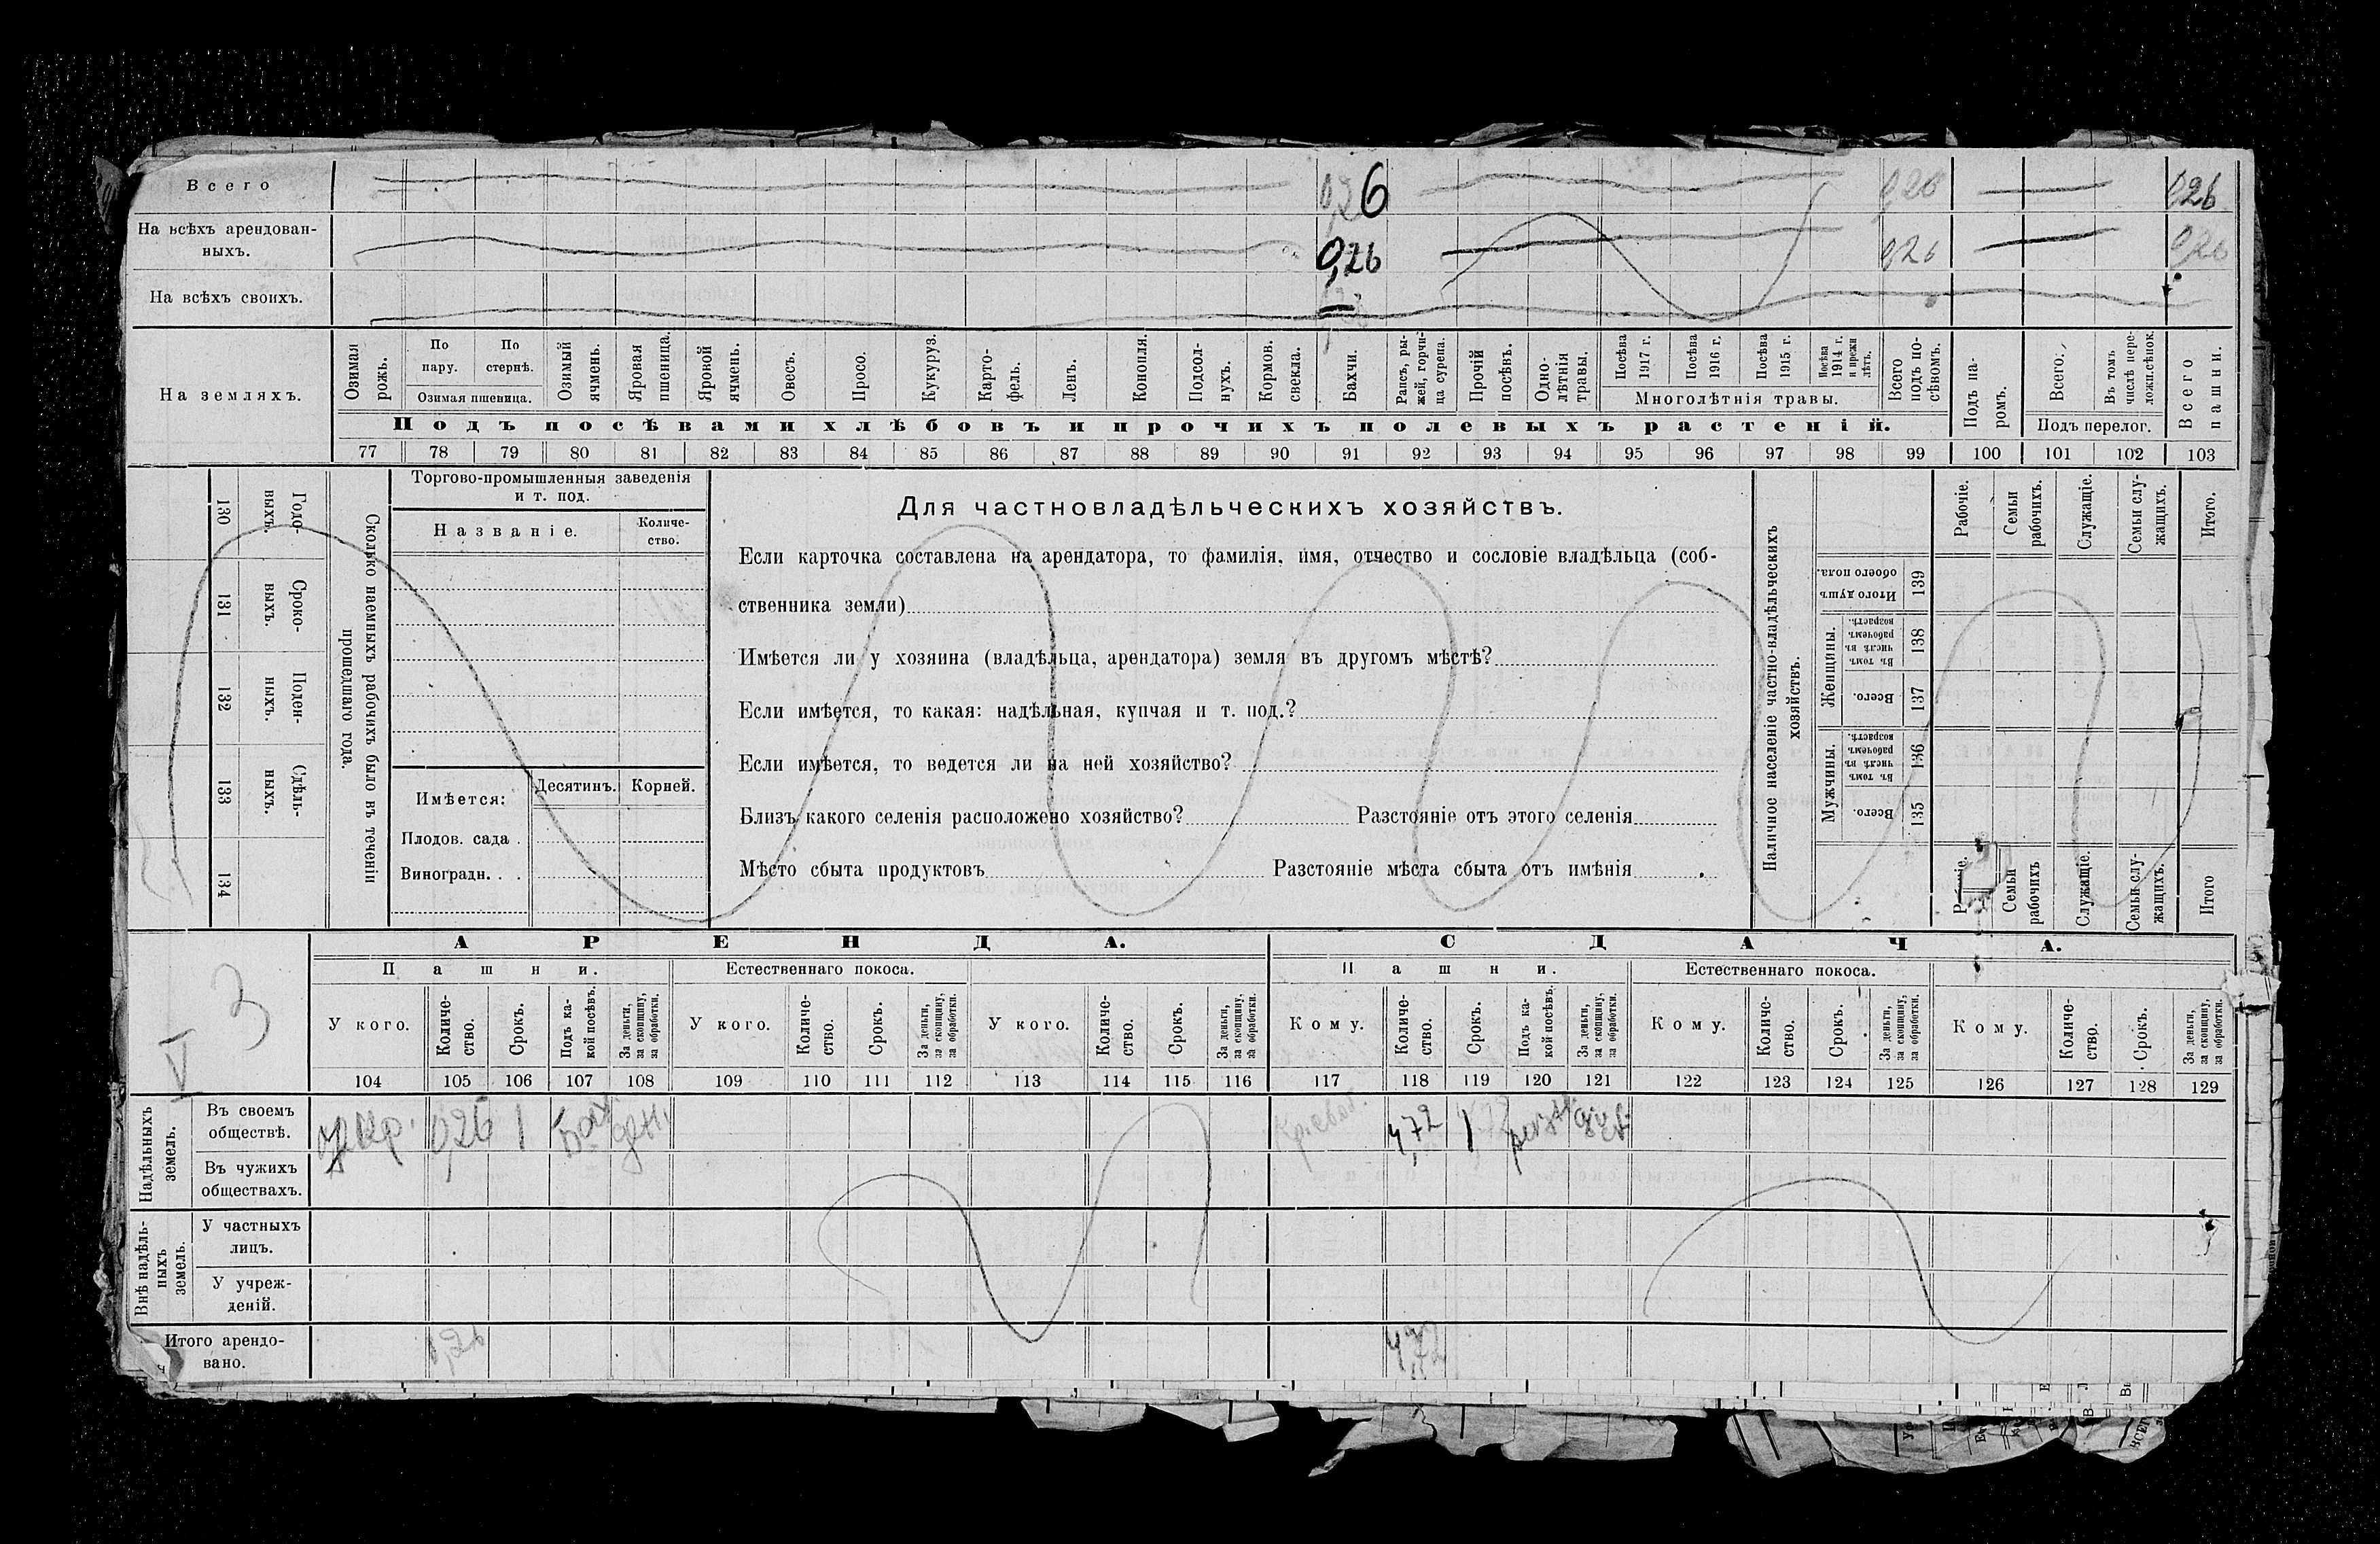 Всего 0,26 0,26 0,26
На всѣхъ арендован-
ныхъ. 0,26 0,26 0,26
На всѣхъ своихъ.
На земляхъ.
Озимая рожь.
По пару.
По стернѣ.
Озимая пшеница.
Озимый ячмень.
Яровая пшеница.
Яровой ячмень.
Овесъ.
Просо.
Кукуруз.
Карто-
фель.
Ленъ.
Конопля.
Подсол-
нухъ.
Кормов. свекла.
Бахчи.
Рапсъ, ры-
жей, горчи-
ца сурепа.
Прочій посѣвъ.
Одно-
лѣтнія травы.
Посѣва 1917 г.
Посѣва 1916 г.
Посѣва 1915 г.
Посѣва 1914 г. и прежн лѣтъ.
Многолѣтнія травы.
Всего подъ по-
сѣвомъ.
Подъ па-
ромъ.
Всего.
Въ томъ числѣ пере-
ложн.сѣнок.
Подъ перелог.
Всего пашни.
Подъ посѣвами хлѣбовъ и прочихъ полевыхъ растеній.
77 78 79 80 81 82 83 84 85 86 87 88 89 90 91 92 93 94 95 96 97 98 99 100 101 102 103
Годо-
выхъ.
130
Сроко-
выхъ.
131
Поден-
ныхъ.
132
Сдѣль-
ныхъ.
133
134
Сколько наемныхъ рабочихъ было въ теченіи
прошедшаго года.
Торгово-промышленныя заведенія
и т. под.
Названіе.
Количе-
ство.
Имѣется:
Десятинъ.
Корней.
Плодов. сада .
Виноградн. . .
Для частновладѣльческихъ хозяйствъ.
Если карточка составлена на арендатора, то фамилія, имя, отчество и сословіе владѣльца (соб-
ственника земли)
Имѣется ли у хозяина (владѣльца, арендатора) земля въ другомъ мѣстѣ?
Если имѣется, то какая: надѣльная, купчая и т. под.?
Если имѣется, то ведется ли на ней хозяйство?
Близъ какого селенія расположено хозяйство? Разстояніе отъ этого селенія
Мѣсто сбыта продуктовъ Разстояніе мѣста сбыта отъ имѣнія
Наличное населеніе частно-владѣльческихъ
хозяйствъ.
Рабочіе.
Семьи рабочихъ.
Служащіе.
Семьи слу-
жащихъ.
Итого.
Итого душъ обоего пола.
139
Женщины.
Въ томъ числѣ въ рабочемъ возрастѣ.
138
Всего.
137
Мужчины.
Въ томъ числѣ въ рабочемъ возрастѣ.
136
Всего.
135
Семьи рабочихъ
Служащіе.
Семьи слу-
жащихъ.
Итого
V 3
АРЕНДА.
СДАЧА.
Пашни.
Естественнаго покоса.
Пашни.
Естественнаго покоса.
У кого.
Количе-
ство.
Срокъ.
Подъ ка-
кой посѣвъ.
За деньги, за скопщину, за обработки.
У кого.
Количе-
ство.
Срокъ.
За деньги, за скопщину, за обработки.
У кого.
Количе-
ство.
Срокъ.
За деньги, за скопщину, за обработки.
Кому.
Количе-
ство.
Срокъ.
Подъ ка-
кой посѣвъ.
За деньги, за скопщину, за обработки.
Кому.
Количе-
ство.
Срокъ.
За деньги, за скопщину, за обработки.
Кому.
Количе-
ство.
Срокъ.
За деньги, за скопщину, за обработки.
104 105 106 107 108 109 110 111 112 113 114 115 116 117 118 119 120 121 122 123 124 125 126 127 128 129
Надѣльныхъ
земель.
Въ своемъ
обществѣ. 0,26 1 Бах. 4,72 1
Въ чужихъ
обществахъ.
Внѣ надѣль-
ныхъ
земель.
У частныхъ
лицъ.
У учреж-
деній.
Итого арендо-
вано. 0,26 4,72